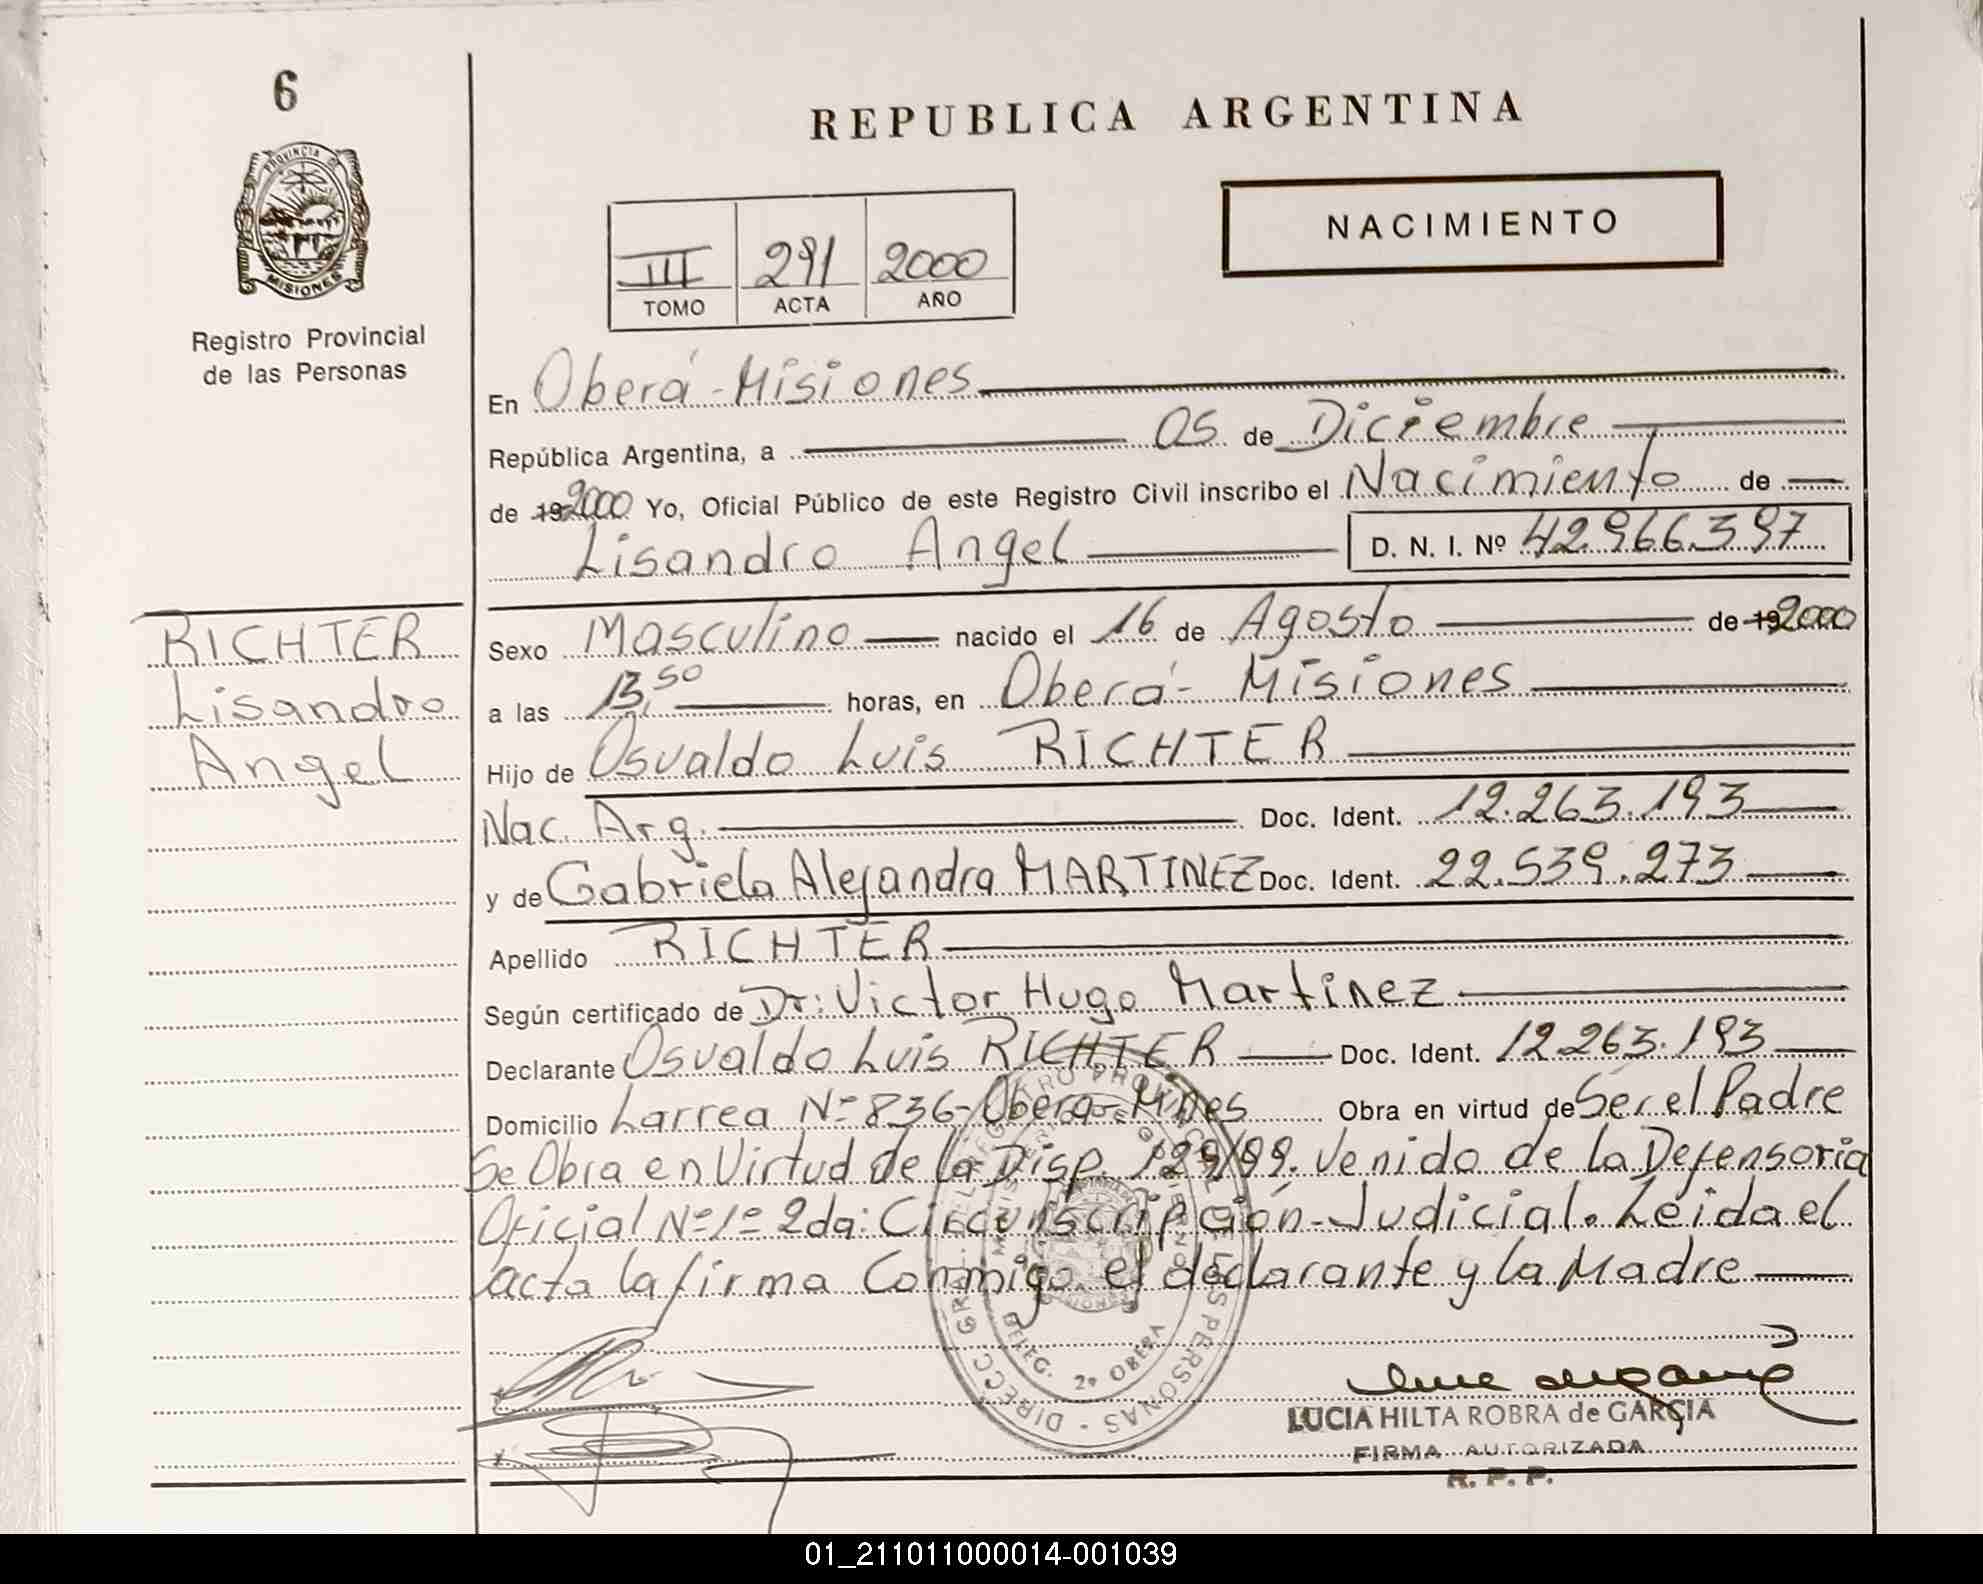 6
PROVINCIA D
MISIONES
Registro Provincial
de las Personas
REPUBLICA ARGENTINA
III 291 2000
TOMO ACTA AÑO
NACIMIENTO
En Oberá - Misiones
República Argentina, a 05 de Diciembre
de 19 2000 Yo, Oficial Público de este Registro Civil inscribo el Nacimiento de
Lisandro Angel D. N. I. Nº 42.966.397
RICHTER
Lisandro
Angel
Sexo Masculino nacido el 16 de Agosto de 19 2000
a las 13,50 horas, en Oberá - Misiones
Hijo de Osvaldo Luis RICHTER
Nac. Arg. Doc. Ident. 12.263.193
y de Gabriela Alejandra MARTINEZ Doc. Ident. 22.539.273
Apellido RICHTER
Según certificado de Dr: Victor Hugo Martinez
Declarante Osvaldo Luis RICHTER Doc. Ident. 12.263.193
Domicilio Larrea Nº 836 - Oberá - Mnes Obra en virtud de Ser el Padre
Se Obra en Virtud de la Disp. 129/99. Venido de la Defensoria
Oficial Nº 1º 2da: Circunscripción - Judicial. Leida el
acta la firma Conmigo el declarante y la Madre
DIRECC GRAL. DEL REGISTRO PROVINCIAL DE LAS PERSONAS
MINISTERIO DE GOBIERNO
DELEG. 2º OBERA
LUCIA HILTA ROBRA de GARCIA
FIRMA AUTORIZADA
R. P. P.
01_211011000014-001039